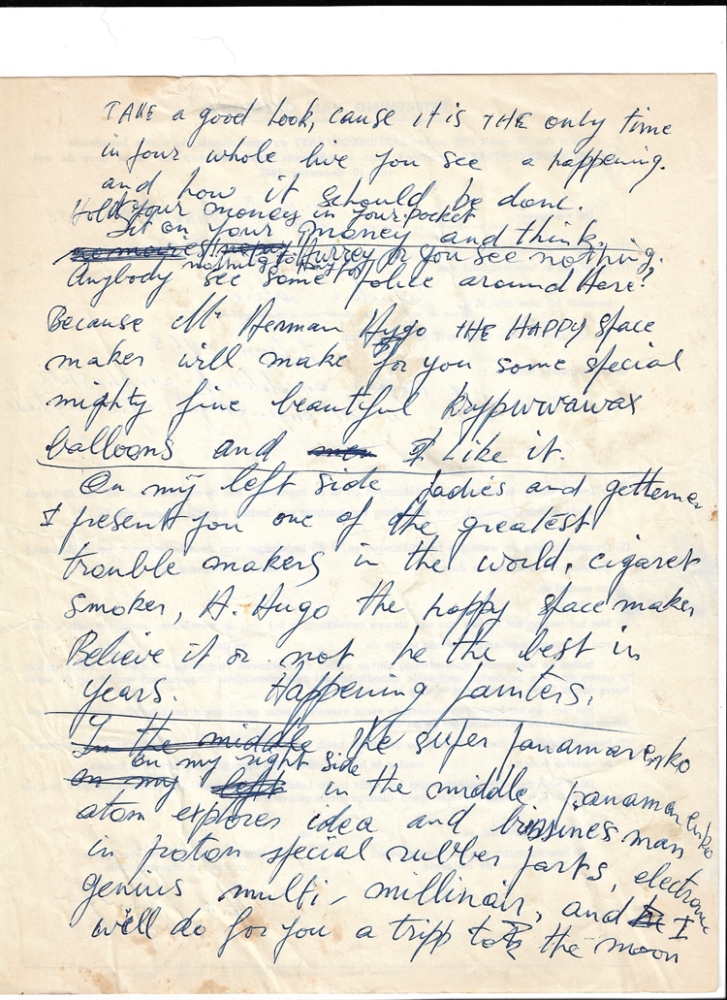 TAKE a good look, cause it is THE only time
in your whole live you see a happening.
and how it should be done.
Hold your money in your pocket
Sit on your money and think.
Hurrey or you see nothing.
nothing to
Anybody see some police around Here?
Because Mr Herman Hugo THE HAPPY space
maker will make for you some special
mighty fine beautiful krypwwawax
balloons and I like it.
On my left side ladies and gettleme
I present you one of the greatest
trouble makers in the world, cigaret
smoker, H. Hugo the happy space maker
Believe it or not he the best in
years. Happening painters.
In the middle the super panamarenko
on my right side
on my left in the middle. panamarenko
atom explores idea and bussines man
in proton special rubber parts, electronic
genius multi-millinair, and I
will do for you a tripp to the moon